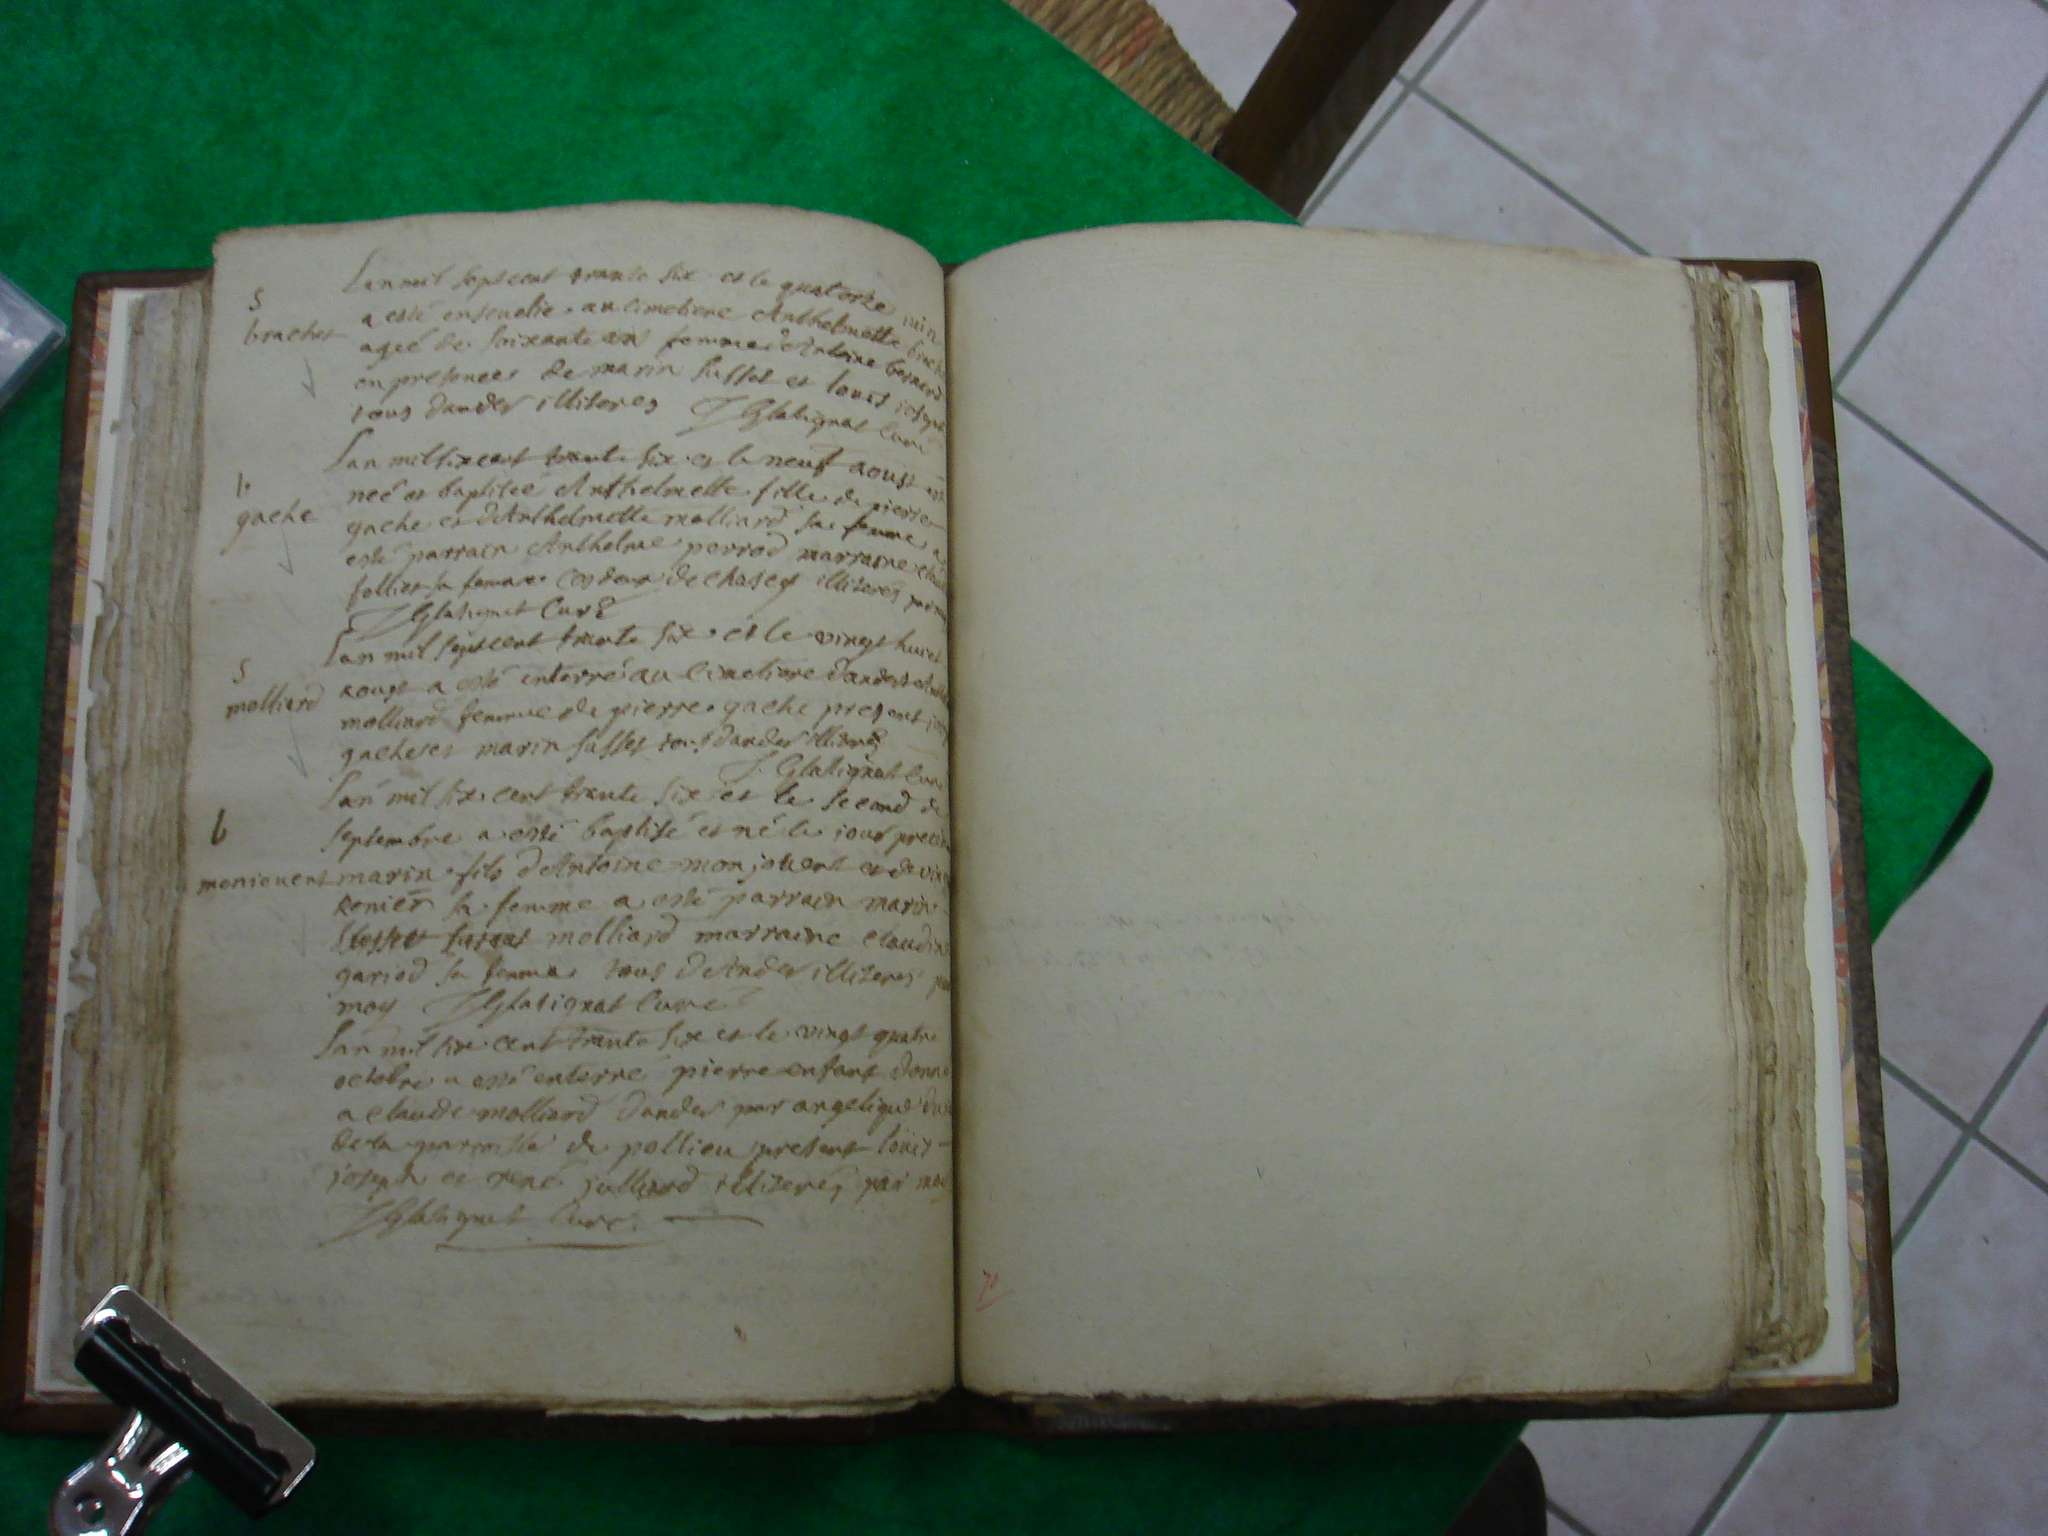 Lan mil sept cent trante six et le quatorze juin
s
brachet
a esté ensevelie au cimetiere Anthelmette brachet
ageé de soixante ans femme dAntoine bernard
en presences de marin susset et louis joseph
tous dander illiteres JGlatignat Curé
Lan mil six cent trante six et le neuf aoust est
b
gache
neé et baptisee Anthelmette fille de pierre
gache et dAnthelmette molliard sa femme a
esté parrain Anthelme perrod marraine
follier sa femme ces deux de chasey illiteres par moy
JGlatignat Curé
Lan mil sept cent trante six et le vingt huict
s
molliard
aoust a esté enterré au cimetiere dander
molliard femme de pierre gache present
gache et marin susset tous dander illiteres
J Glatignat Curé
Lan mil six cent trante six et le second de
b
moniouent
septembre a esté baptisé et né le jour precedent
marin fils dAntoine monjouent et de
Renier sa femme a esté parrain marin
molliard marraine claudine
gariod sa femme tous dAnder illiteres par
moy JGlatignat Curé
Lan mil six cent trante six et le vingt quatre
octobre a esté enterré pierre enfant donné
a claude molliard dander par angelique
de la parroisse de pollieu present louis
joseph et rené julliard illiteres par moy
JGlatignat Curé